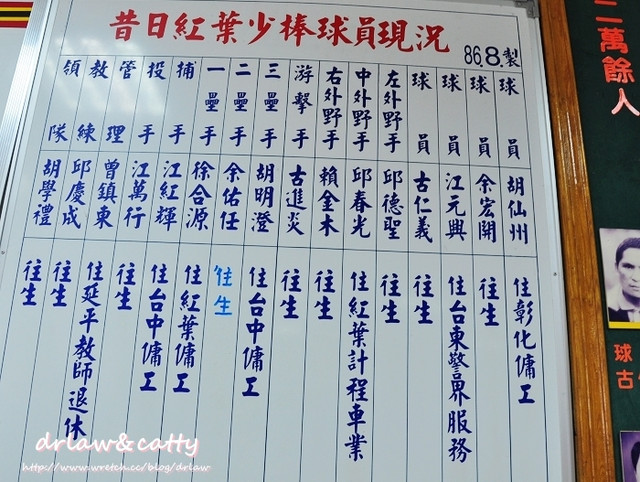 昔日紅葉少棒球員現況
86.8.製
領隊 胡學禮 往生
教練 邱慶成 往生
管理 曾鎮東 住延平教師退休
投手 江萬行 往生
捕手 江紅輝 住台中傭工
一壘手 徐合源 住紅葉傭工
二壘手 余佑任 往生
三壘手 胡明澄 住台中傭工
游擊手 古進炎 往生
右外野手 賴金木 往生
中外野手 邱春光 住紅葉計程車業
左外野手 邱德聖 往生
球員 古仁義 往生
球員 江元興 住台東警界服務
球員 余宏開 往生
球員 胡仙州 住彰化傭工
二萬餘人
球
古
drlaw&catty
http://www.wretch.cc/blog/drlaw